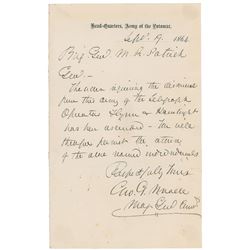 Head-Quarters, Army of the Potomac,
Sept. 9, 1864
Brig Genl M. R. Patrick
Genl —
The order requiring the dismissal
from this army of the telegraph
Operators Flynn &
has been rescinded — You will
therefore permit the return
of the above named individuals
Respectfully Yours
Geo. G. Meade
Maj Genl Comd